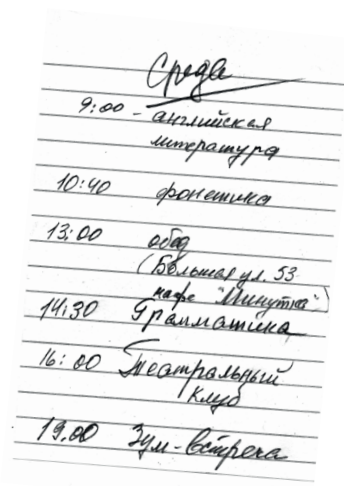 Среда
9:00 - английская
литература
10:40 фонетика
13:00 обед
(Большая ул. 53
кафе "Минутка")
14:30 Грамматика
16:00 Театральный
клуб
19.00 Зум-встреча